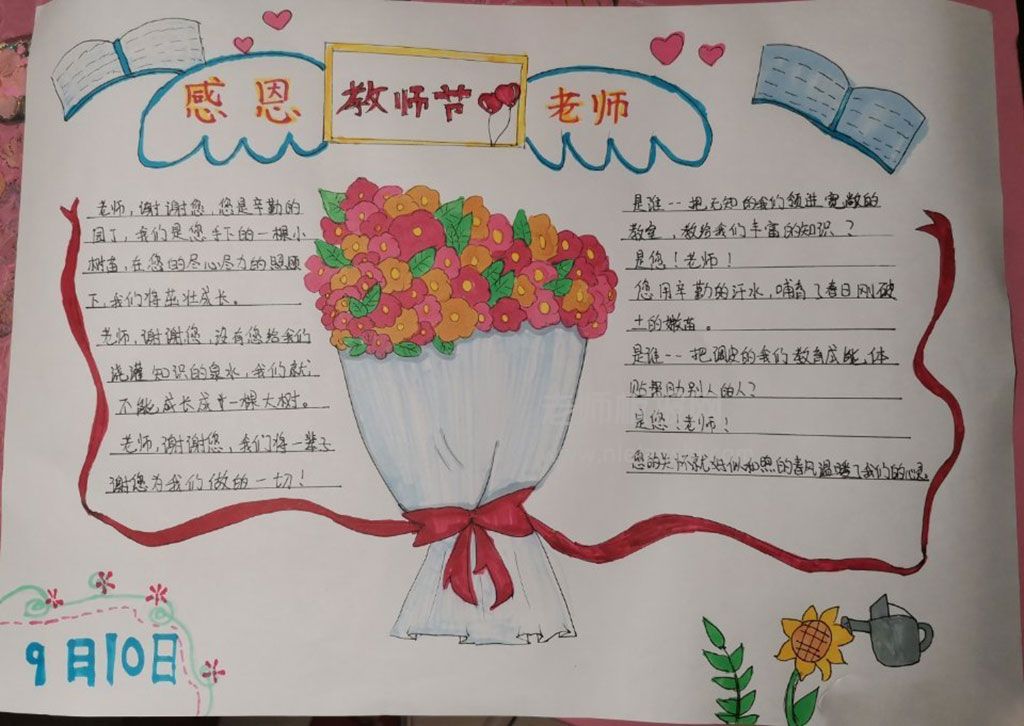 感恩 教师节 老师
老师,谢谢您,您是辛勤的
园丁,我们是您手下的一棵小
树苗,在您的尽心尽力的照顾
下,我们将茁壮成长。
老师,谢谢您,没有您给我们
浇灌知识的泉水,我们就
不能成长成一棵大树。
老师,谢谢您,我们将一辈子
谢您为我们做的一切!
是谁--把无知的我们领进宽敞的
教室,教给我们丰富的知识?
是您!老师!
您用辛勤的汗水,哺育了春日刚破
土的嫩苗。
是谁--把调皮的我们教育成能体
贴帮助别人的人?
是您!老师!
您的关怀就好似和煦的春风温暖了我们的心灵
9月10日